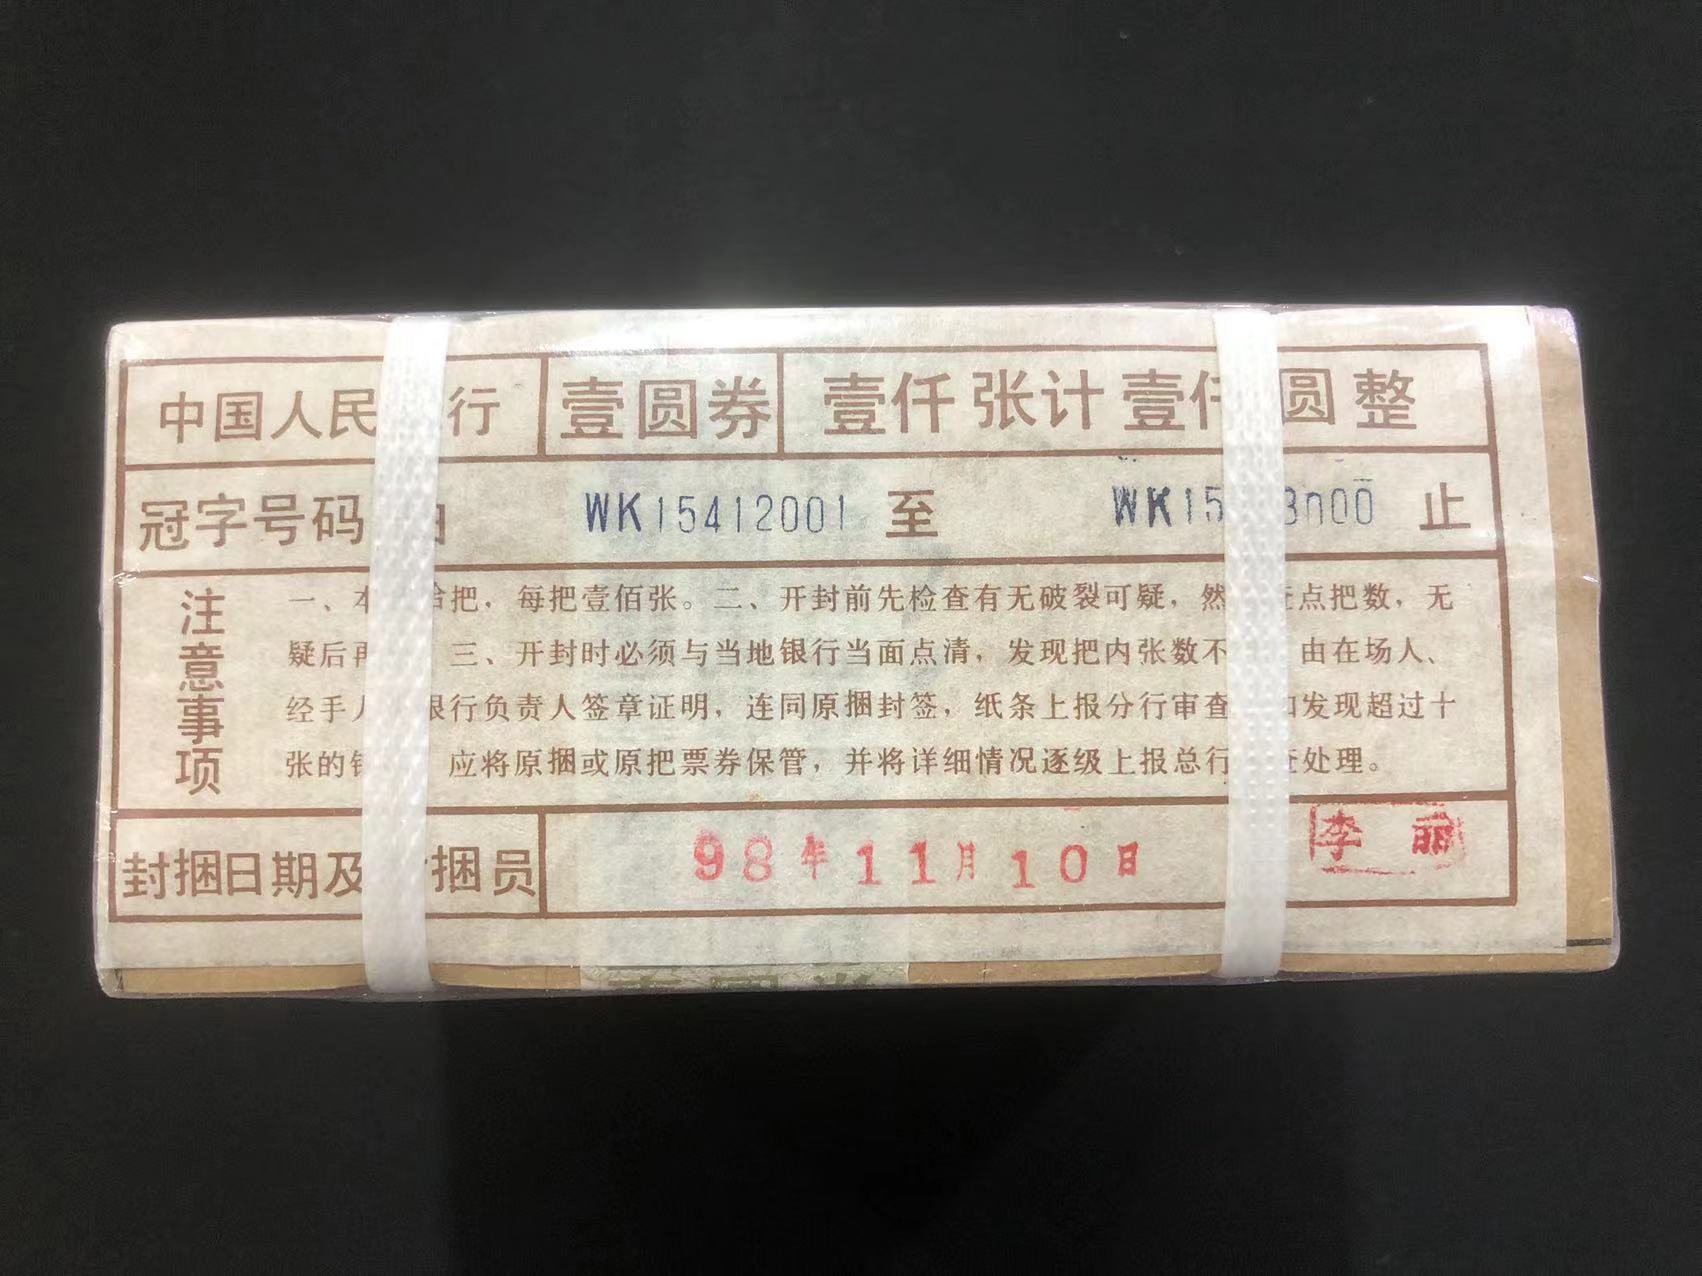 中国人民 行 壹圆券 壹仟张计壹仟圆整
冠字号码 WK15412001 至 WK15 3000 止
注意事项
一、本 把，每把壹佰张。二、开封前先检查有无破裂可疑，然 点把数，无
疑后再 三、开封时必须与当地银行当面点清，发现把内张数不 由在场人、
经手人 银行负责人签章证明，连同原捆封签，纸条上报分行审查 如发现超过十
张的 应将原捆或原把票券保管，并将详细情况逐级上报总行 查处理。
封捆日期及 捆员 98年11月10日 李丽